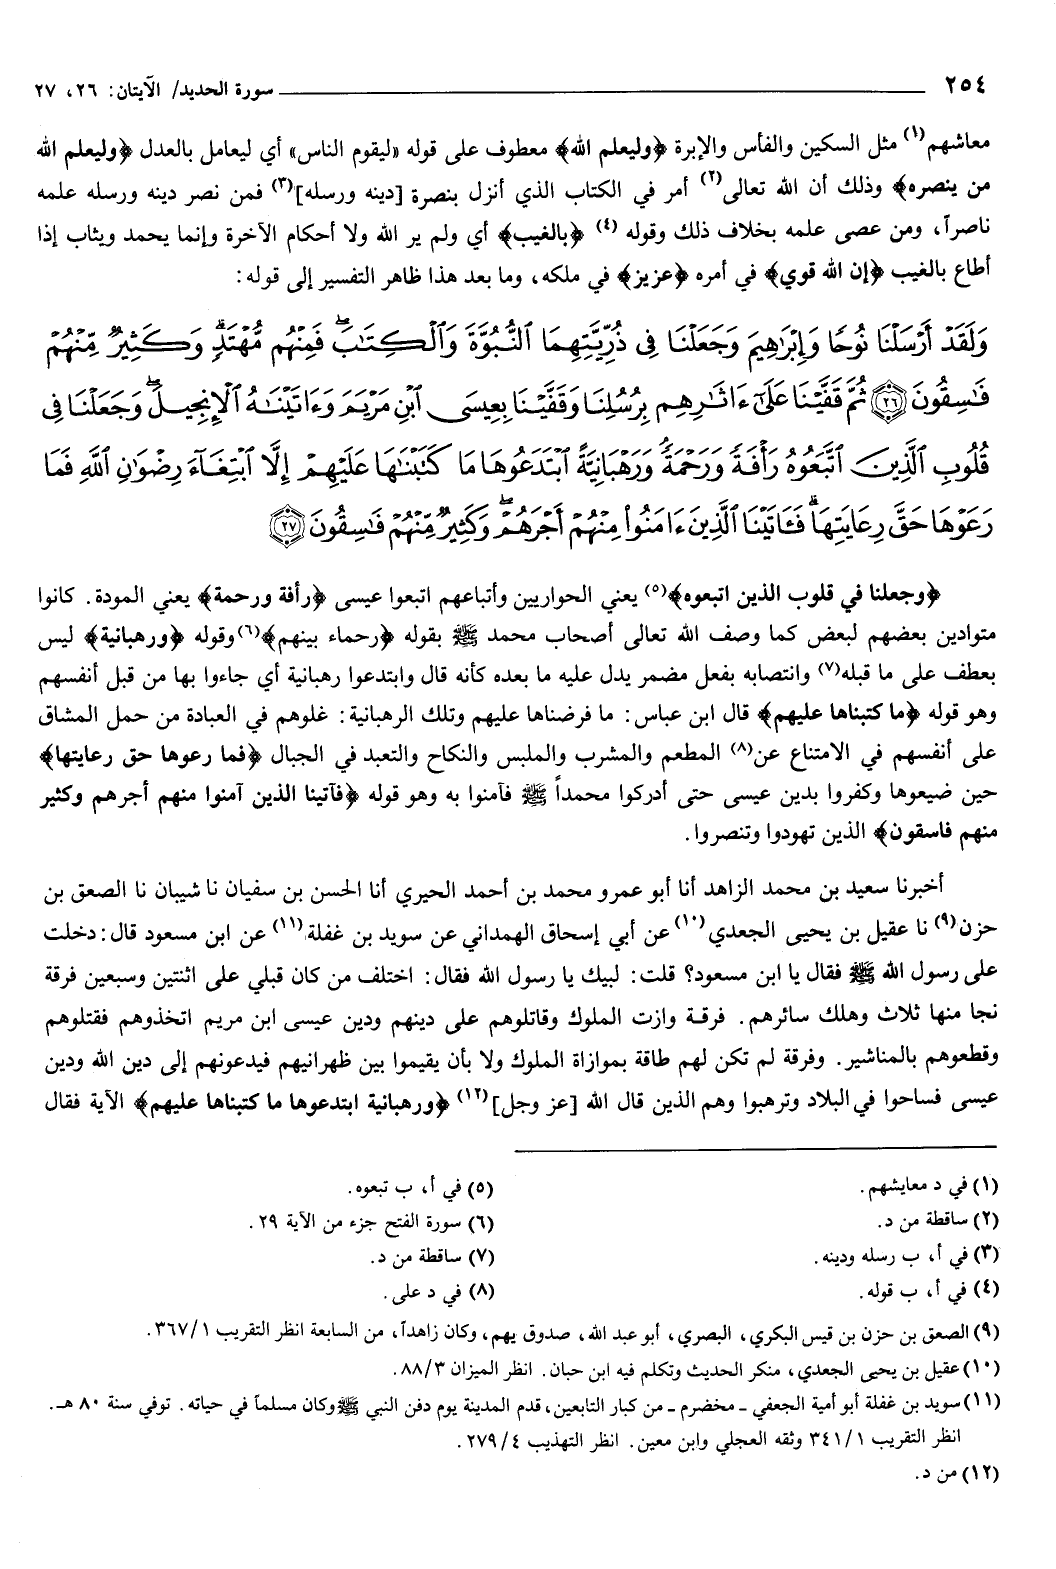 ٢٥٤ سورة الحديد/ الآيتان: ٢٦، ٢٧
معاشهم(١) مثل السكين والفأس والإبرة ﴿وليعلم الله﴾ معطوف على قوله «ليقوم الناس» أي ليعامل بالعدل ﴿وليعلم الله
من ينصره﴾ وذلك أن الله تعالى(٢) أمر في الكتاب الذي أنزل بنصرة [دينه ورسله](٣) فمن نصر دينه ورسله علمه
ناصراً، ومن عصى علمه بخلاف ذلك وقوله (٤) ﴿بالغيب﴾ أي ولم ير الله ولا أحكام الآخرة وإنما يحمد ويثاب إذا
أطاع بالغيب ﴿إن الله قوي﴾ في أمره ﴿عزيز﴾ في ملكه، وما بعد هذا ظاهر التفسير إلى قوله:
وَلَقَدْ أَرْسَلْنَا نُوحًا وَإِبْرَاهِيمَ وَجَعَلْنَا فِى ذُرِّيَّتِهِمَا ٱلنُّبُوَّةَ وَٱلْكِتَٰبَ ۖ فَمِنْهُم مُّهْتَدٍ ۖ وَكَثِيرٌ مِّنْهُمْ
فَٰسِقُونَ ﴿٢٦﴾ ثُمَّ قَفَّيْنَا عَلَىٰٓ ءَاثَٰرِهِم بِرُسُلِنَا وَقَفَّيْنَا بِعِيسَى ٱبْنِ مَرْيَمَ وَءَاتَيْنَٰهُ ٱلْإِنجِيلَ ۖ وَجَعَلْنَا فِى
قُلُوبِ ٱلَّذِينَ ٱتَّبَعُوهُ رَأْفَةً وَرَحْمَةً وَرَهْبَانِيَّةً ٱبْتَدَعُوهَا مَا كَتَبْنَٰهَا عَلَيْهِمْ إِلَّا ٱبْتِغَآءَ رِضْوَٰنِ ٱللَّهِ فَمَا
رَعَوْهَا حَقَّ رِعَايَتِهَا ۖ فَـَٔاتَيْنَا ٱلَّذِينَ ءَامَنُوا۟ مِنْهُمْ أَجْرَهُمْ ۖ وَكَثِيرٌ مِّنْهُمْ فَٰسِقُونَ ﴿٢٧﴾
﴿وجعلنا في قلوب الذين اتبعوه﴾(٥) يعني الحواريين وأتباعهم اتبعوا عيسى ﴿رأفة ورحمة﴾ يعني المودة. كانوا
متوادين بعضهم لبعض كما وصف الله تعالى أصحاب محمد ﷺ بقوله ﴿رحماء بينهم﴾(٦) وقوله ﴿ورهبانية﴾ ليس
بعطف على ما قبله(٧) وانتصابه بفعل مضمر يدل عليه ما بعده كأنه قال وابتدعوا رهبانية أي جاءوا بها من قبل أنفسهم
وهو قوله ﴿ما كتبناها عليهم﴾ قال ابن عباس: ما فرضناها عليهم وتلك الرهبانية: غلوهم في العبادة من حمل المشاق
على أنفسهم في الامتناع عن(٨) المطعم والمشرب والملبس والنكاح والتعبد في الجبال ﴿فما رعوها حق رعايتها﴾
حين ضيعوها وكفروا بدين عيسى حتى أدركوا محمداً ﷺ فآمنوا به وهو قوله ﴿فآتينا الذين آمنوا منهم أجرهم وكثير
منهم فاسقون﴾ الذين تهودوا وتنصروا.
أخبرنا سعيد بن محمد الزاهد أنا أبو عمرو محمد بن أحمد الحيري أنا الحسن بن سفيان نا شيبان نا الصعق بن
حزن(٩) نا عقيل بن يحيى الجعدي(١٠) عن أبي إسحاق الهمداني عن سويد بن غفلة(١١) عن ابن مسعود قال: دخلت
على رسول الله ﷺ فقال يا ابن مسعود؟ قلت: لبيك يا رسول الله فقال: اختلف من كان قبلي على اثنتين وسبعين فرقة
نجا منها ثلاث وهلك سائرهم. فرقة وازت الملوك وقاتلوهم على دينهم ودين عيسى ابن مريم اتخذوهم فقتلوهم
وقطعوهم بالمناشير. وفرقة لم تكن لهم طاقة بموازاة الملوك ولا بأن يقيموا بين ظهرانيهم فيدعونهم إلى دين الله ودين
عيسى فساحوا في البلاد وترهبوا وهم الذين قال الله [عز وجل](١٢) ﴿ورهبانية ابتدعوها ما كتبناها عليهم﴾ الآية فقال
(١) في د معايشهم.
(٢) ساقطة من د.
(٣) في أ، ب رسله ودينه.
(٤) في أ، ب قوله.
(٥) في أ، ب تبعوه.
(٦) سورة الفتح جزء من الآية ٢٩.
(٧) ساقطة من د.
(٨) في د على.
(٩) الصعق بن حزن بن قيس البكري، البصري، أبو عبد الله، صدوق يهم، وكان زاهداً، من السابعة انظر التقريب ٣٦٧/١.
(١٠) عقيل بن يحيى الجعدي، منكر الحديث وتكلم فيه ابن حبان. انظر الميزان ٨٨/٣.
(١١) سويد بن غفلة أبو أمية الجعفي - مخضرم - من كبار التابعين، قدم المدينة يوم دفن النبي ﷺ وكان مسلماً في حياته. توفي سنة ٨٠ هـ.
انظر التقريب ٣٤١/١ وثقه العجلي وابن معين. انظر التهذيب ٢٧٩/٤.
(١٢) من د.